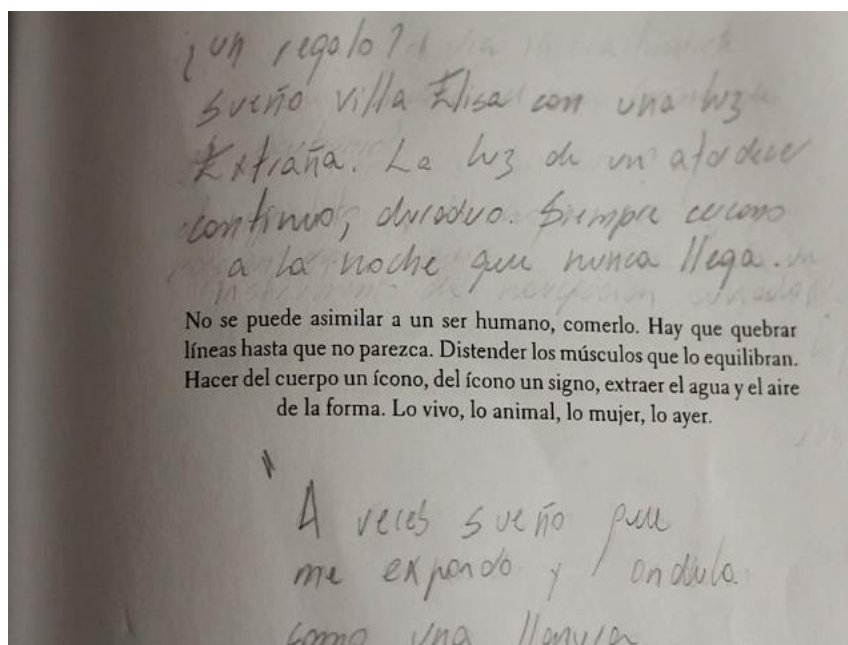 ¿un regalo?
sueño villa Elisa con una luz
Extraña. La luz de un atardecer
continuo, duradero. Siempre cercano
a la noche que nunca llega.
No se puede asimilar a un ser humano, comerlo. Hay que quebrar
líneas hasta que no parezca. Distender los músculos que lo equilibran.
Hacer del cuerpo un ícono, del ícono un signo, extraer el agua y el aire
de la forma. Lo vivo, lo animal, lo mujer, lo ayer.
A veces sueño que
me expando y ondulo
como una llanura